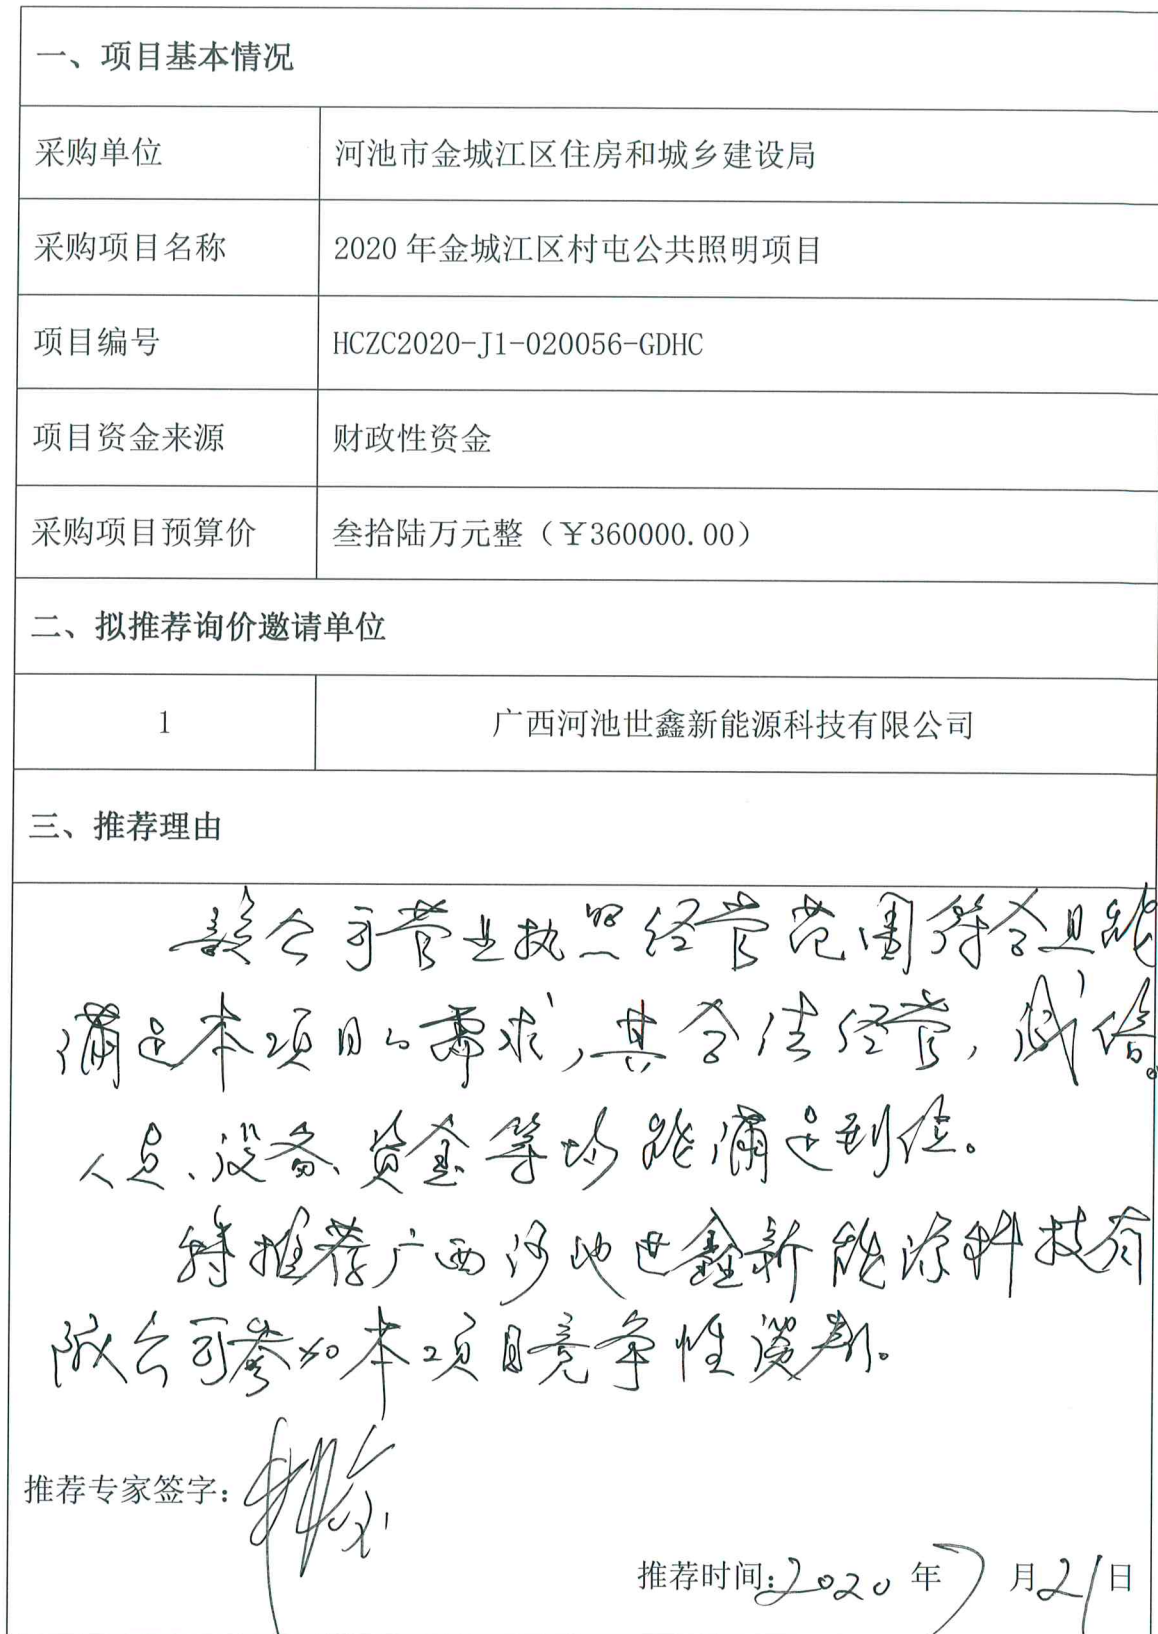 一、项目基本情况
采购单位 河池市金城江区住房和城乡建设局
采购项目名称 2020年金城江区村屯公共照明项目
项目编号 HCZC2020-J1-020056-GDHC
项目资金来源 财政性资金
采购项目预算价 叁拾陆万元整（￥360000.00）
二、拟推荐询价邀请单位
1 广西河池世鑫新能源科技有限公司
三、推荐理由
该公司营业执照经营范围符合且能
满足本项目的需求，其合法经营，诚信。
人员、设备、资金等均能满足到位。
特推荐广西河池世鑫新能源科技有
限公司参加本项目竞争性谈判。
推荐专家签字：
推荐时间：2020年7月21日